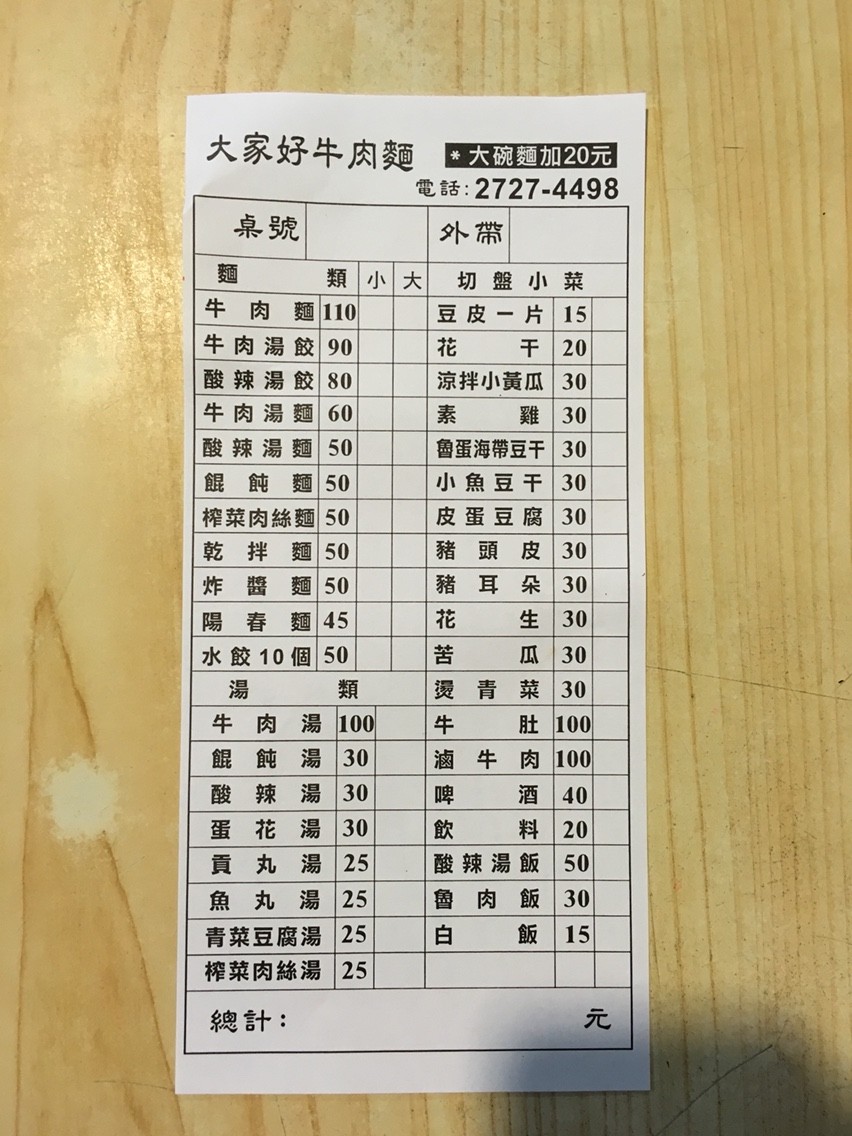 大家好牛肉麵 *大碗麵加20元
電話:2727-4498
桌號 外帶
麵類 小 大 切盤小菜
牛肉麵 110 豆皮一片 15
牛肉湯餃 90 花干 20
酸辣湯餃 80 涼拌小黃瓜 30
牛肉湯麵 60 素雞 30
酸辣湯麵 50 魯蛋海帶豆干 30
餛飩麵 50 小魚豆干 30
榨菜肉絲麵 50 皮蛋豆腐 30
乾拌麵 50 豬頭皮 30
炸醬麵 50 豬耳朵 30
陽春麵 45 花生 30
水餃10個 50 苦瓜 30
湯類 燙青菜 30
牛肉湯 100 牛肚 100
餛飩湯 30 滷牛肉 100
酸辣湯 30 啤酒 40
蛋花湯 30 飲料 20
貢丸湯 25 酸辣湯飯 50
魚丸湯 25 魯肉飯 30
青菜豆腐湯 25 白飯 15
榨菜肉絲湯 25
總計: 元